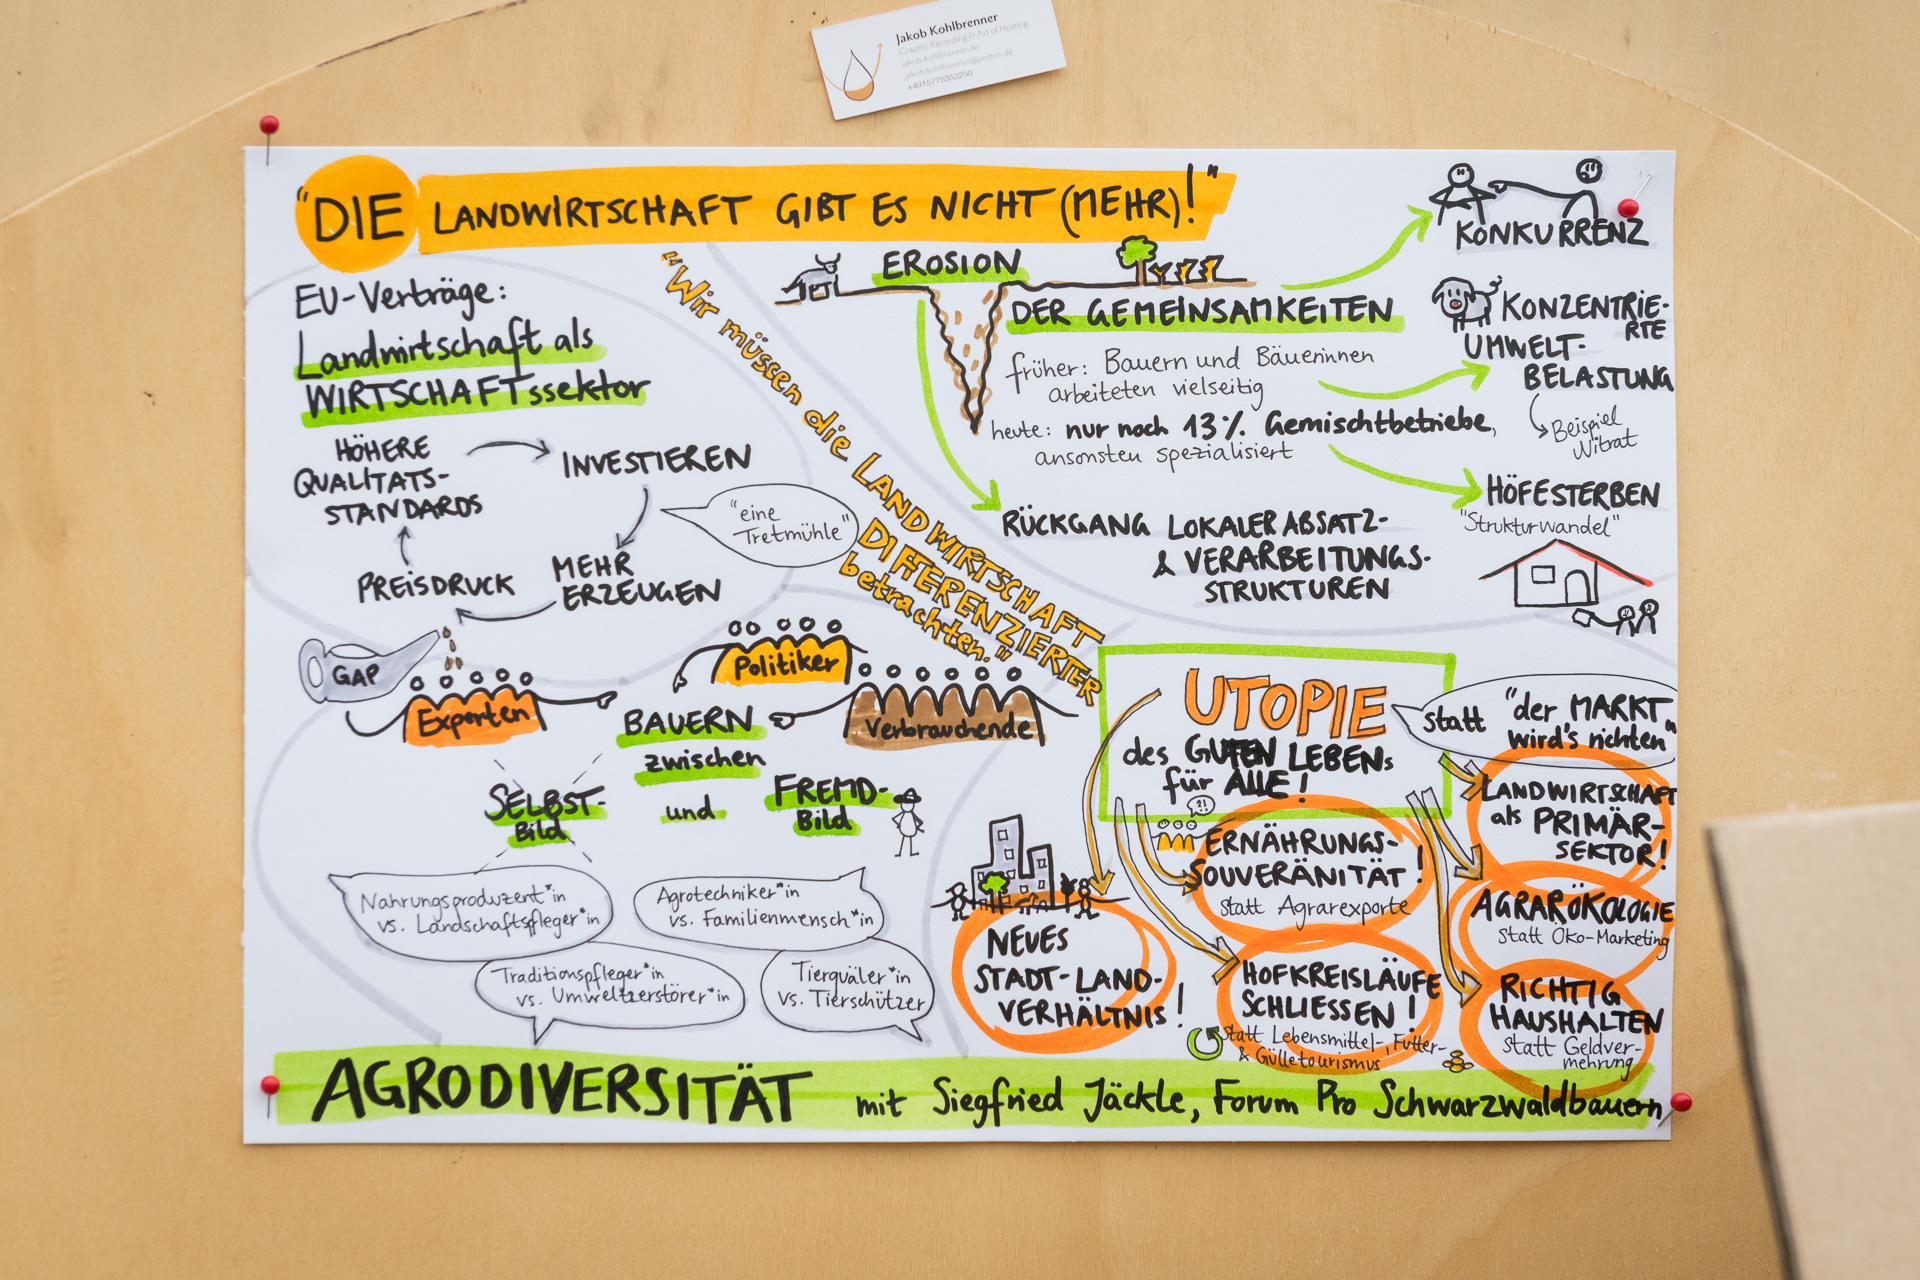 Jakob Kohlbrenner
Graphic Recording & Art of Hosting
jakob-kohlbrenner.de
jakob.kohlbrenner@posteo.de
+4915775353250
"DIE LANDWIRTSCHAFT GIBT ES NICHT (MEHR)!"
EU-Verträge:
Landwirtschaft als
WIRTSCHAFTssektor
HÖHERE
QUALITÄTS-
STANDARDS
INVESTIEREN
"eine
Tretmühle"
MEHR
ERZEUGEN
PREISDRUCK
GAP
"Wir müssen die LANDWIRTSCHAFT
DIFFERENZIERTER
betrachten."
EROSION
DER GEMEINSAMKEITEN
früher: Bauern und Bäuerinnen
arbeiteten vielseitig
heute: nur noch 13% Gemischtbetriebe,
ansonsten spezialisiert
KONKURRENZ
KONZENTRIE-
RTE
UMWELT-
BELASTUNG
Beispiel
Nitrat
HÖFESTERBEN
"Strukturwandel"
RÜCKGANG LOKALER ABSATZ-
& VERARBEITUNGS-
STRUKTUREN
Experten
Politiker
Verbrauchende
BAUERN
zwischen
SELBST-
Bild
und
FREMD-
Bild
Nahrungsproduzent*in
vs. Landschaftspfleger*in
Agrotechniker*in
vs. Familienmensch*in
Traditionspfleger*in
vs. Umweltzerstörer*in
Tierquäler*in
vs. Tierschützer
UTOPIE
des GUTEN LEBENs
für ALLE!
statt "der MARKT
wird's richten"
?!
LANDWIRTSCHAFT
als PRIMÄR-
SEKTOR!
ERNÄHRUNGS-
SOUVERÄNITÄT!
statt Agrarexporte
AGRARÖKOLOGIE
statt Öko-Marketing
NEUES
STADT-LAND-
VERHÄLTNIS!
HOFKREISLÄUFE
SCHLIESSEN!
statt Lebensmittel-, Futter-
& Gülletourismus
RICHTIG
HAUSHALTEN
statt Geldver-
mehrung
AGRODIVERSITÄT mit Siegfried Jäckle, Forum Pro Schwarzwaldbauern